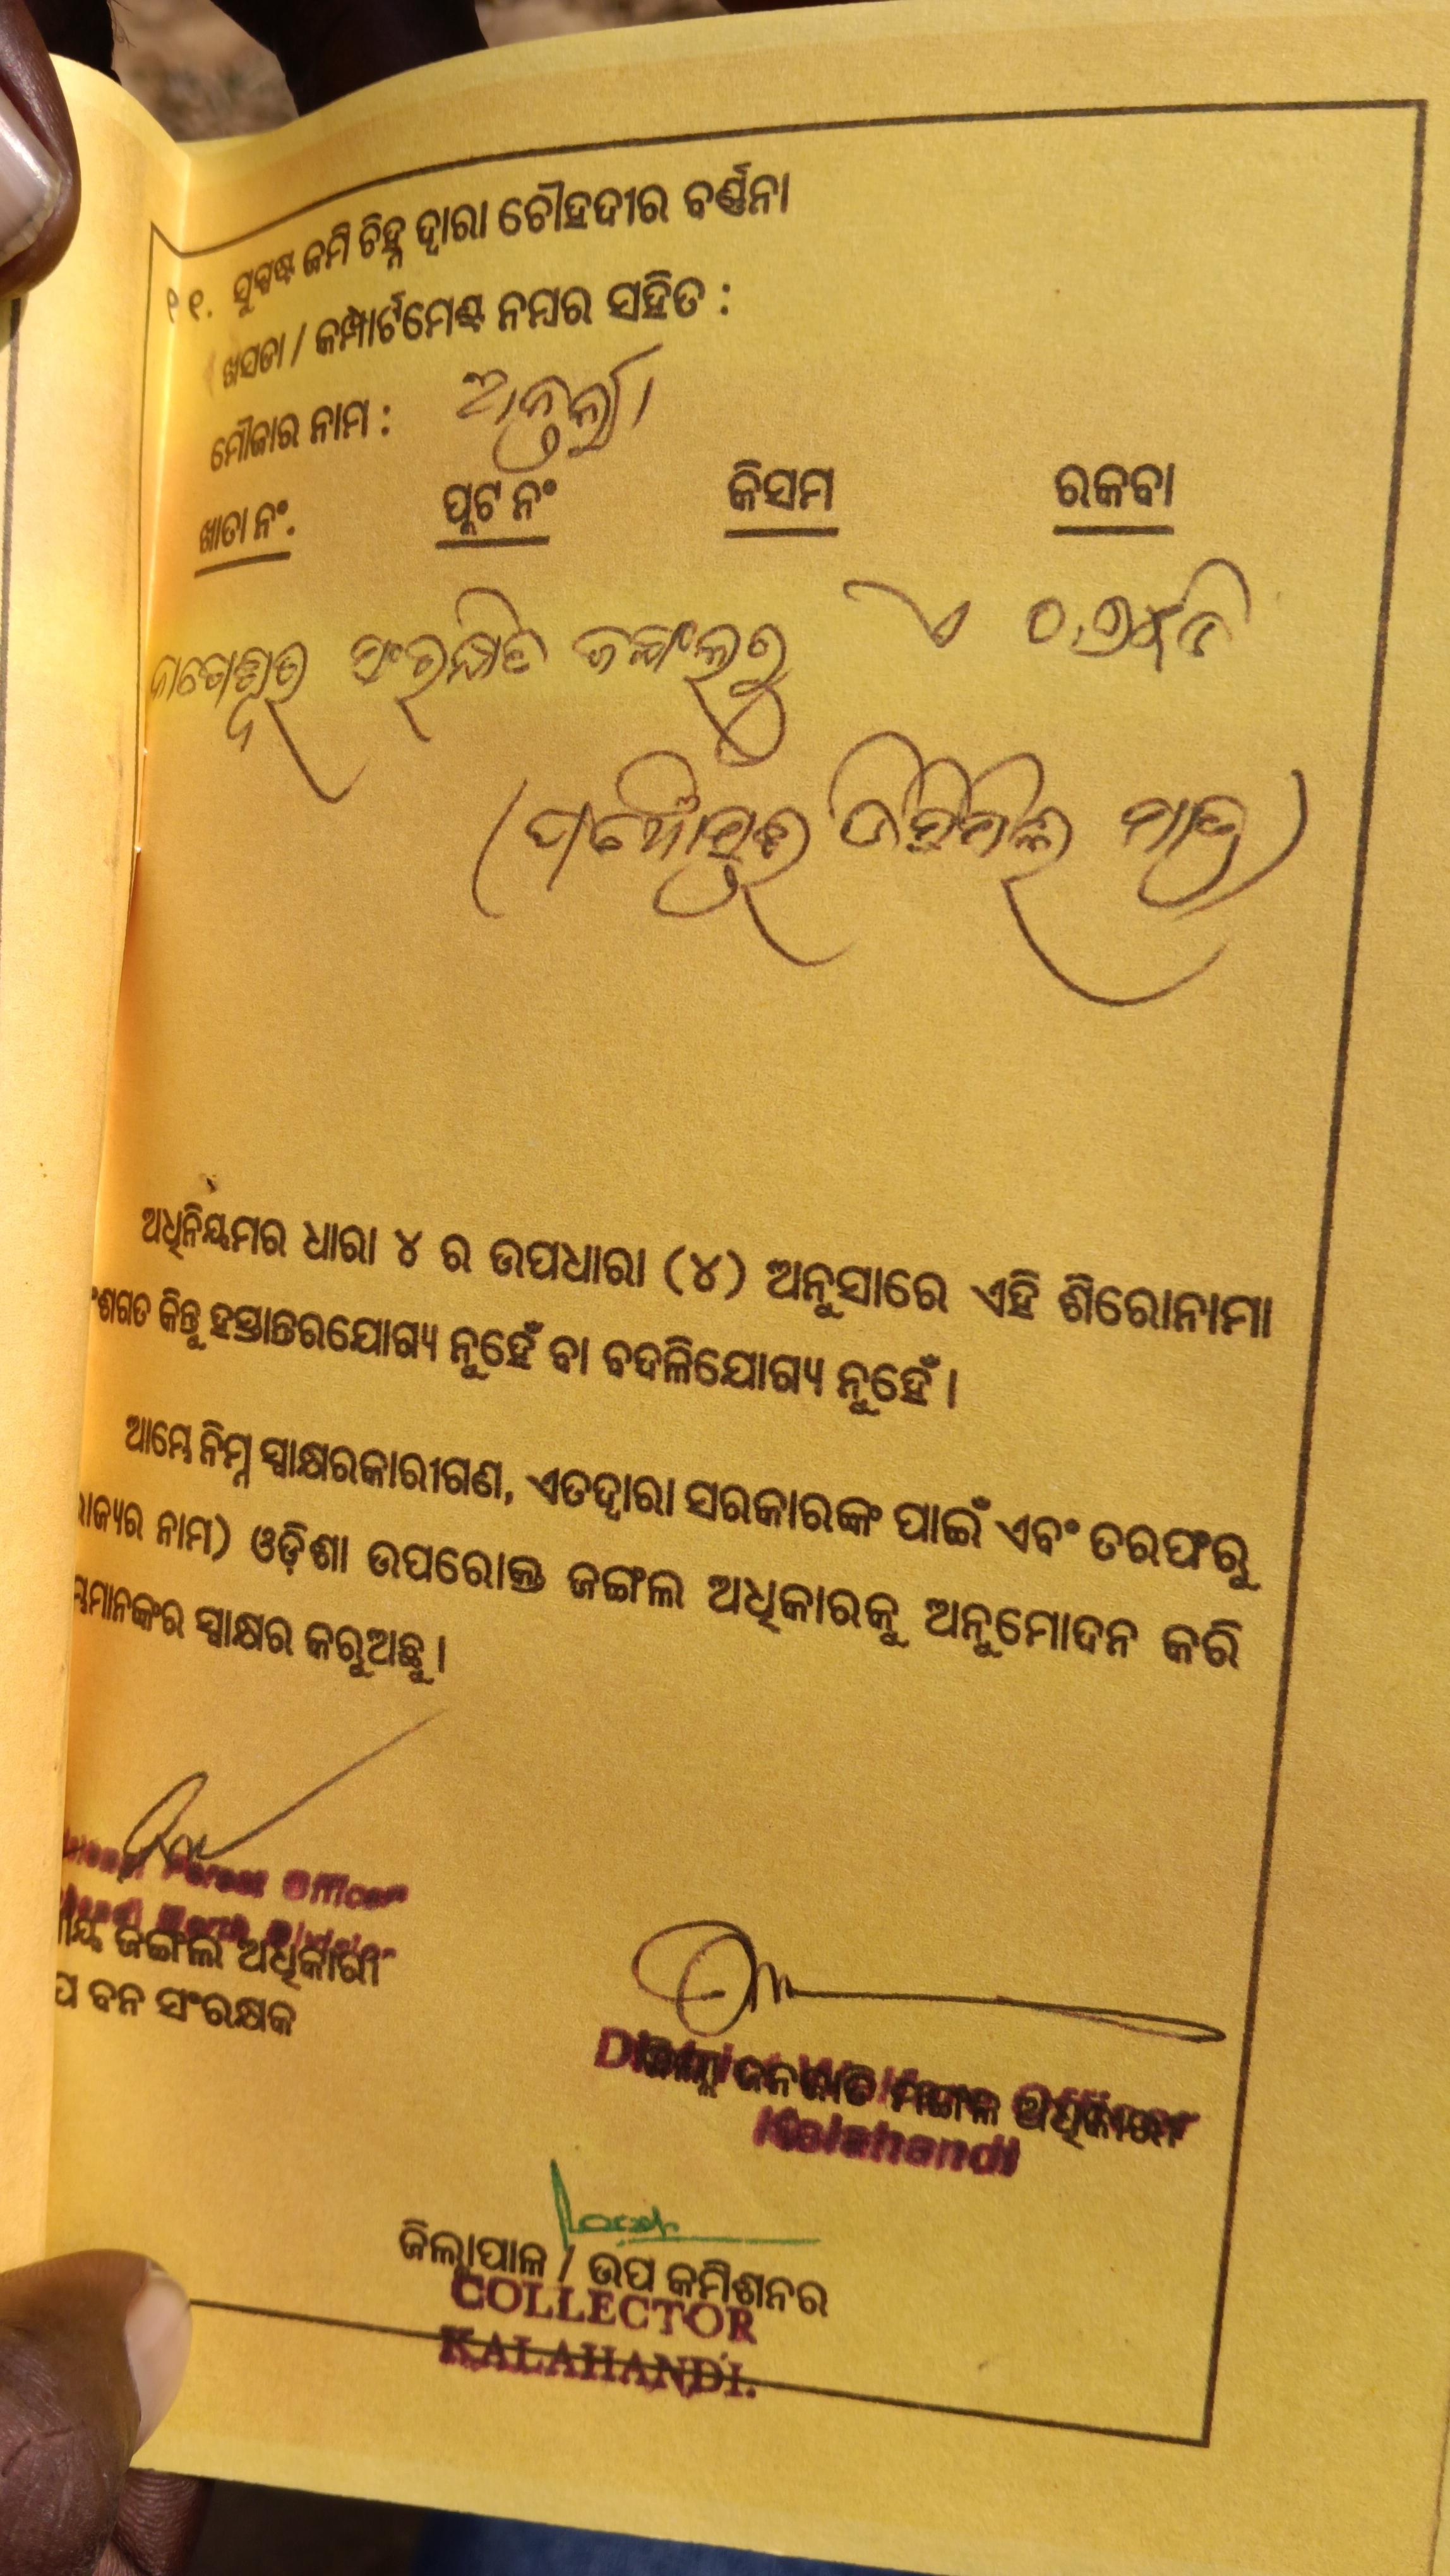 ୧୧. ସୁସ୍ପଷ୍ଟ ଜମି ଚିହ୍ନ ଦ୍ୱାରା ଚୌହଦୀର ବର୍ଣ୍ଣନା
ଖସଡା / କମ୍ପାର୍ଟମେଣ୍ଟ ନମ୍ବର ସହିତ :
ମୌଜାର ନାମ :
ଖାତା ନଂ. ପ୍ଲଟ ନଂ କିସମ ରକବା
ସଂରକ୍ଷିତ ଜଙ୍ଗଲରୁ ଏ ୦.୬୪ଡି
ଅଧିନିୟମର ଧାରା ୪ ର ଉପଧାରା (୪) ଅନୁସାରେ ଏହି ଶିରୋନାମା
ଂଶଗତ କିନ୍ତୁ ହସ୍ତାନ୍ତରଯୋଗ୍ୟ ନୁହେଁ ବା ବଦଳିଯୋଗ୍ୟ ନୁହେଁ ।
ଆମ୍ଭେ ନିମ୍ନ ସ୍ୱାକ୍ଷରକାରୀଗଣ, ଏତଦ୍ୱାରା ସରକାରଙ୍କ ପାଇଁ ଏବଂ ତରଫରୁ
ରାଜ୍ୟର ନାମ) ଓଡ଼ିଶା ଉପରୋକ୍ତ ଜଙ୍ଗଲ ଅଧିକାରକୁ ଅନୁମୋଦନ କରି
ମ୍ଭମାନଙ୍କର ସ୍ୱାକ୍ଷର କରୁଅଛୁ ।
Forest Officer
North Division
ୀୟ ଜଙ୍ଗଲ ଅଧିକାରୀ
ପ ବନ ସଂରକ୍ଷକ
District Welfare Officer
ଜିଲ୍ଲା ଜନଜାତି ମଙ୍ଗଳ ଅଧିକାରୀ
Kalahandi
ଜିଲ୍ଲାପାଳ / ଉପ କମିଶନର
COLLECTOR
KALAHANDI.